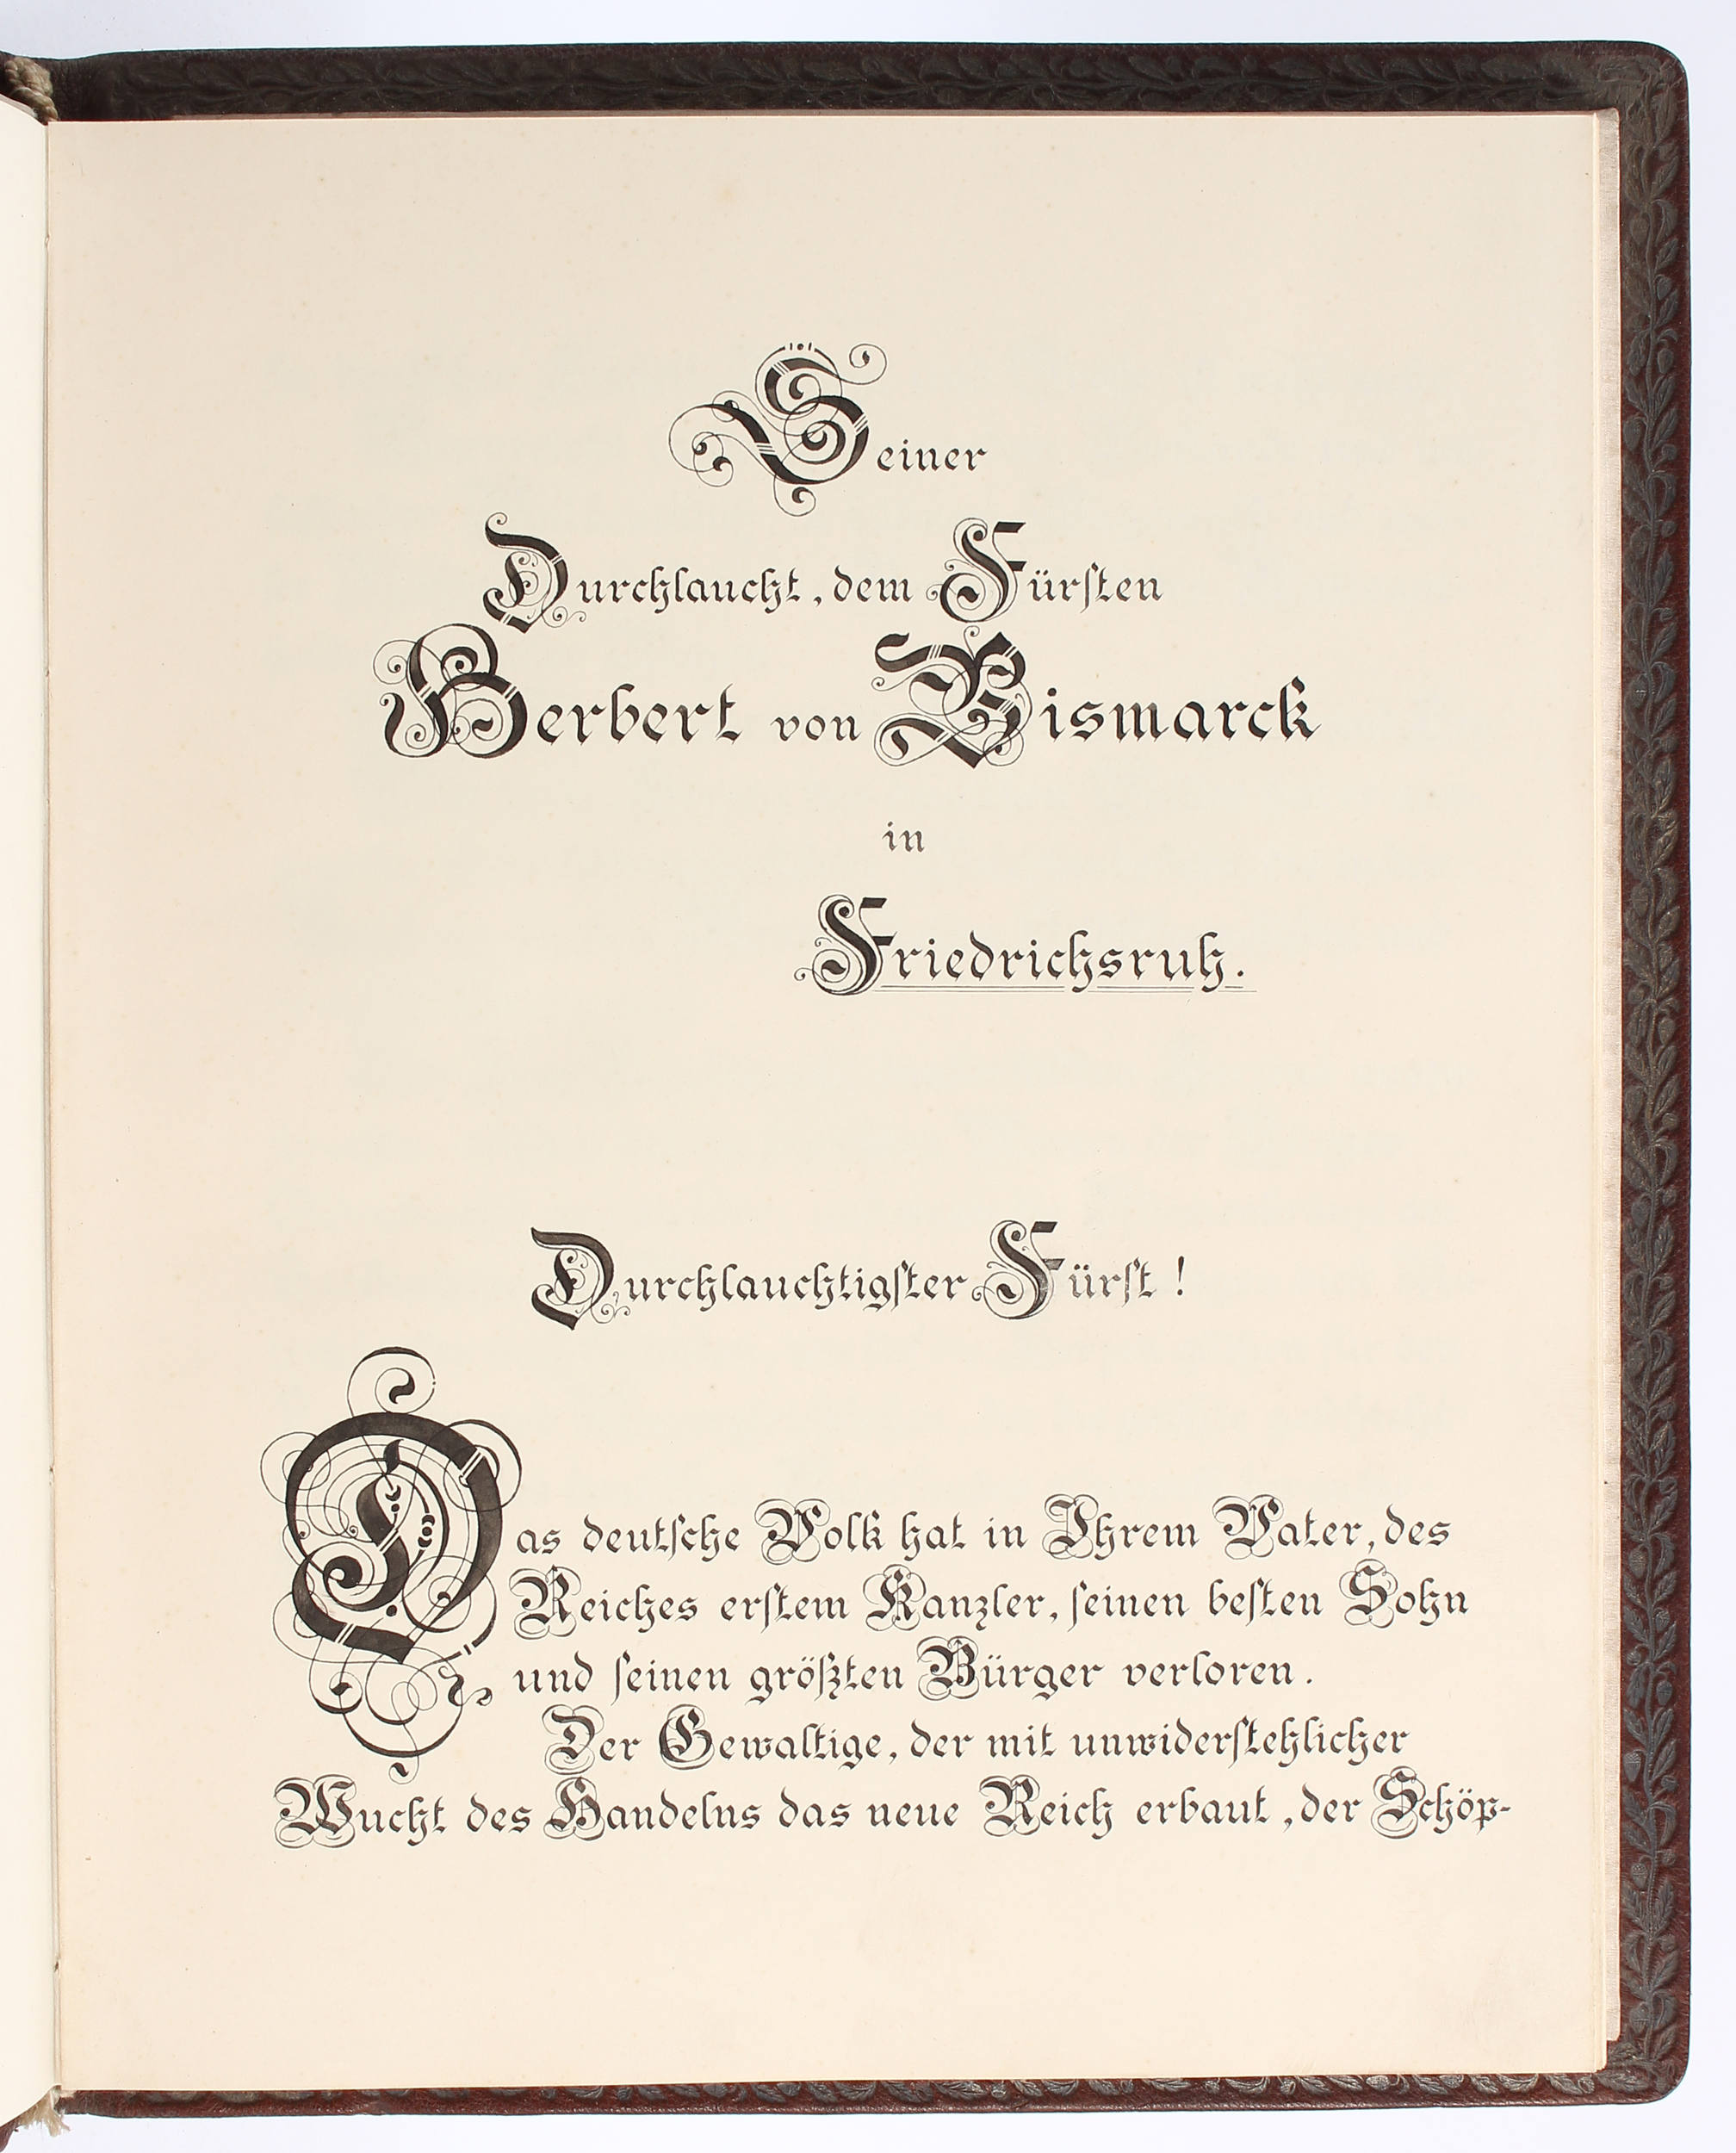 Seiner
Durchlaucht, dem Fürsten
Herbert von Bismarck
in
Friedrichsruh.
Durchlauchtigster Fürst!
Das deutsche Volk hat in Ihrem Vater, des
Reiches erstem Kanzler, seinen besten Sohn
und seinen größten Bürger verloren.
Der Gewaltige, der mit unwiderstehlicher
Wucht des Handelns das neue Reich erbaut, der Schöp-